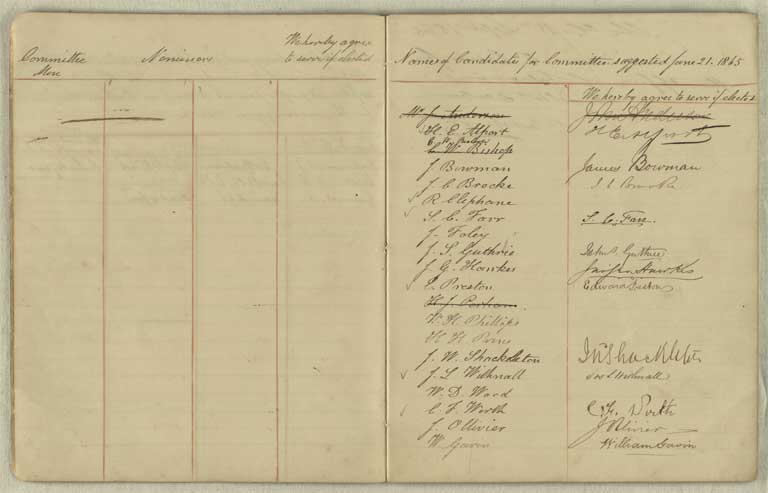 Committee Men
Nominors
We hereby agree
to serve if elected
Names of Candidates for Committee suggested June 21. 1865
We hereby agree to serve if elected
Mr J. Anderson
H. E. Alport
C. W. Bishop
J Bowman
J. C. Brooke
R Clephane
S. C. Farr
J. Foley
J. S. Guthrie
J G. Hawkes
E. Preston
W. H. Phillips
H H
J. W. Shackleton
J L Withnall
W. D. Wood
C F Worth
J. Ollivier
W. Gavin
John Anderson
H E Alport
James Bowman
S. C. Farr.
John S. Guthrie
Hawkes
Edward Preston
J W Shackleton
Jas L Withnall
C. F. Worth
J Ollivier
William Gavin